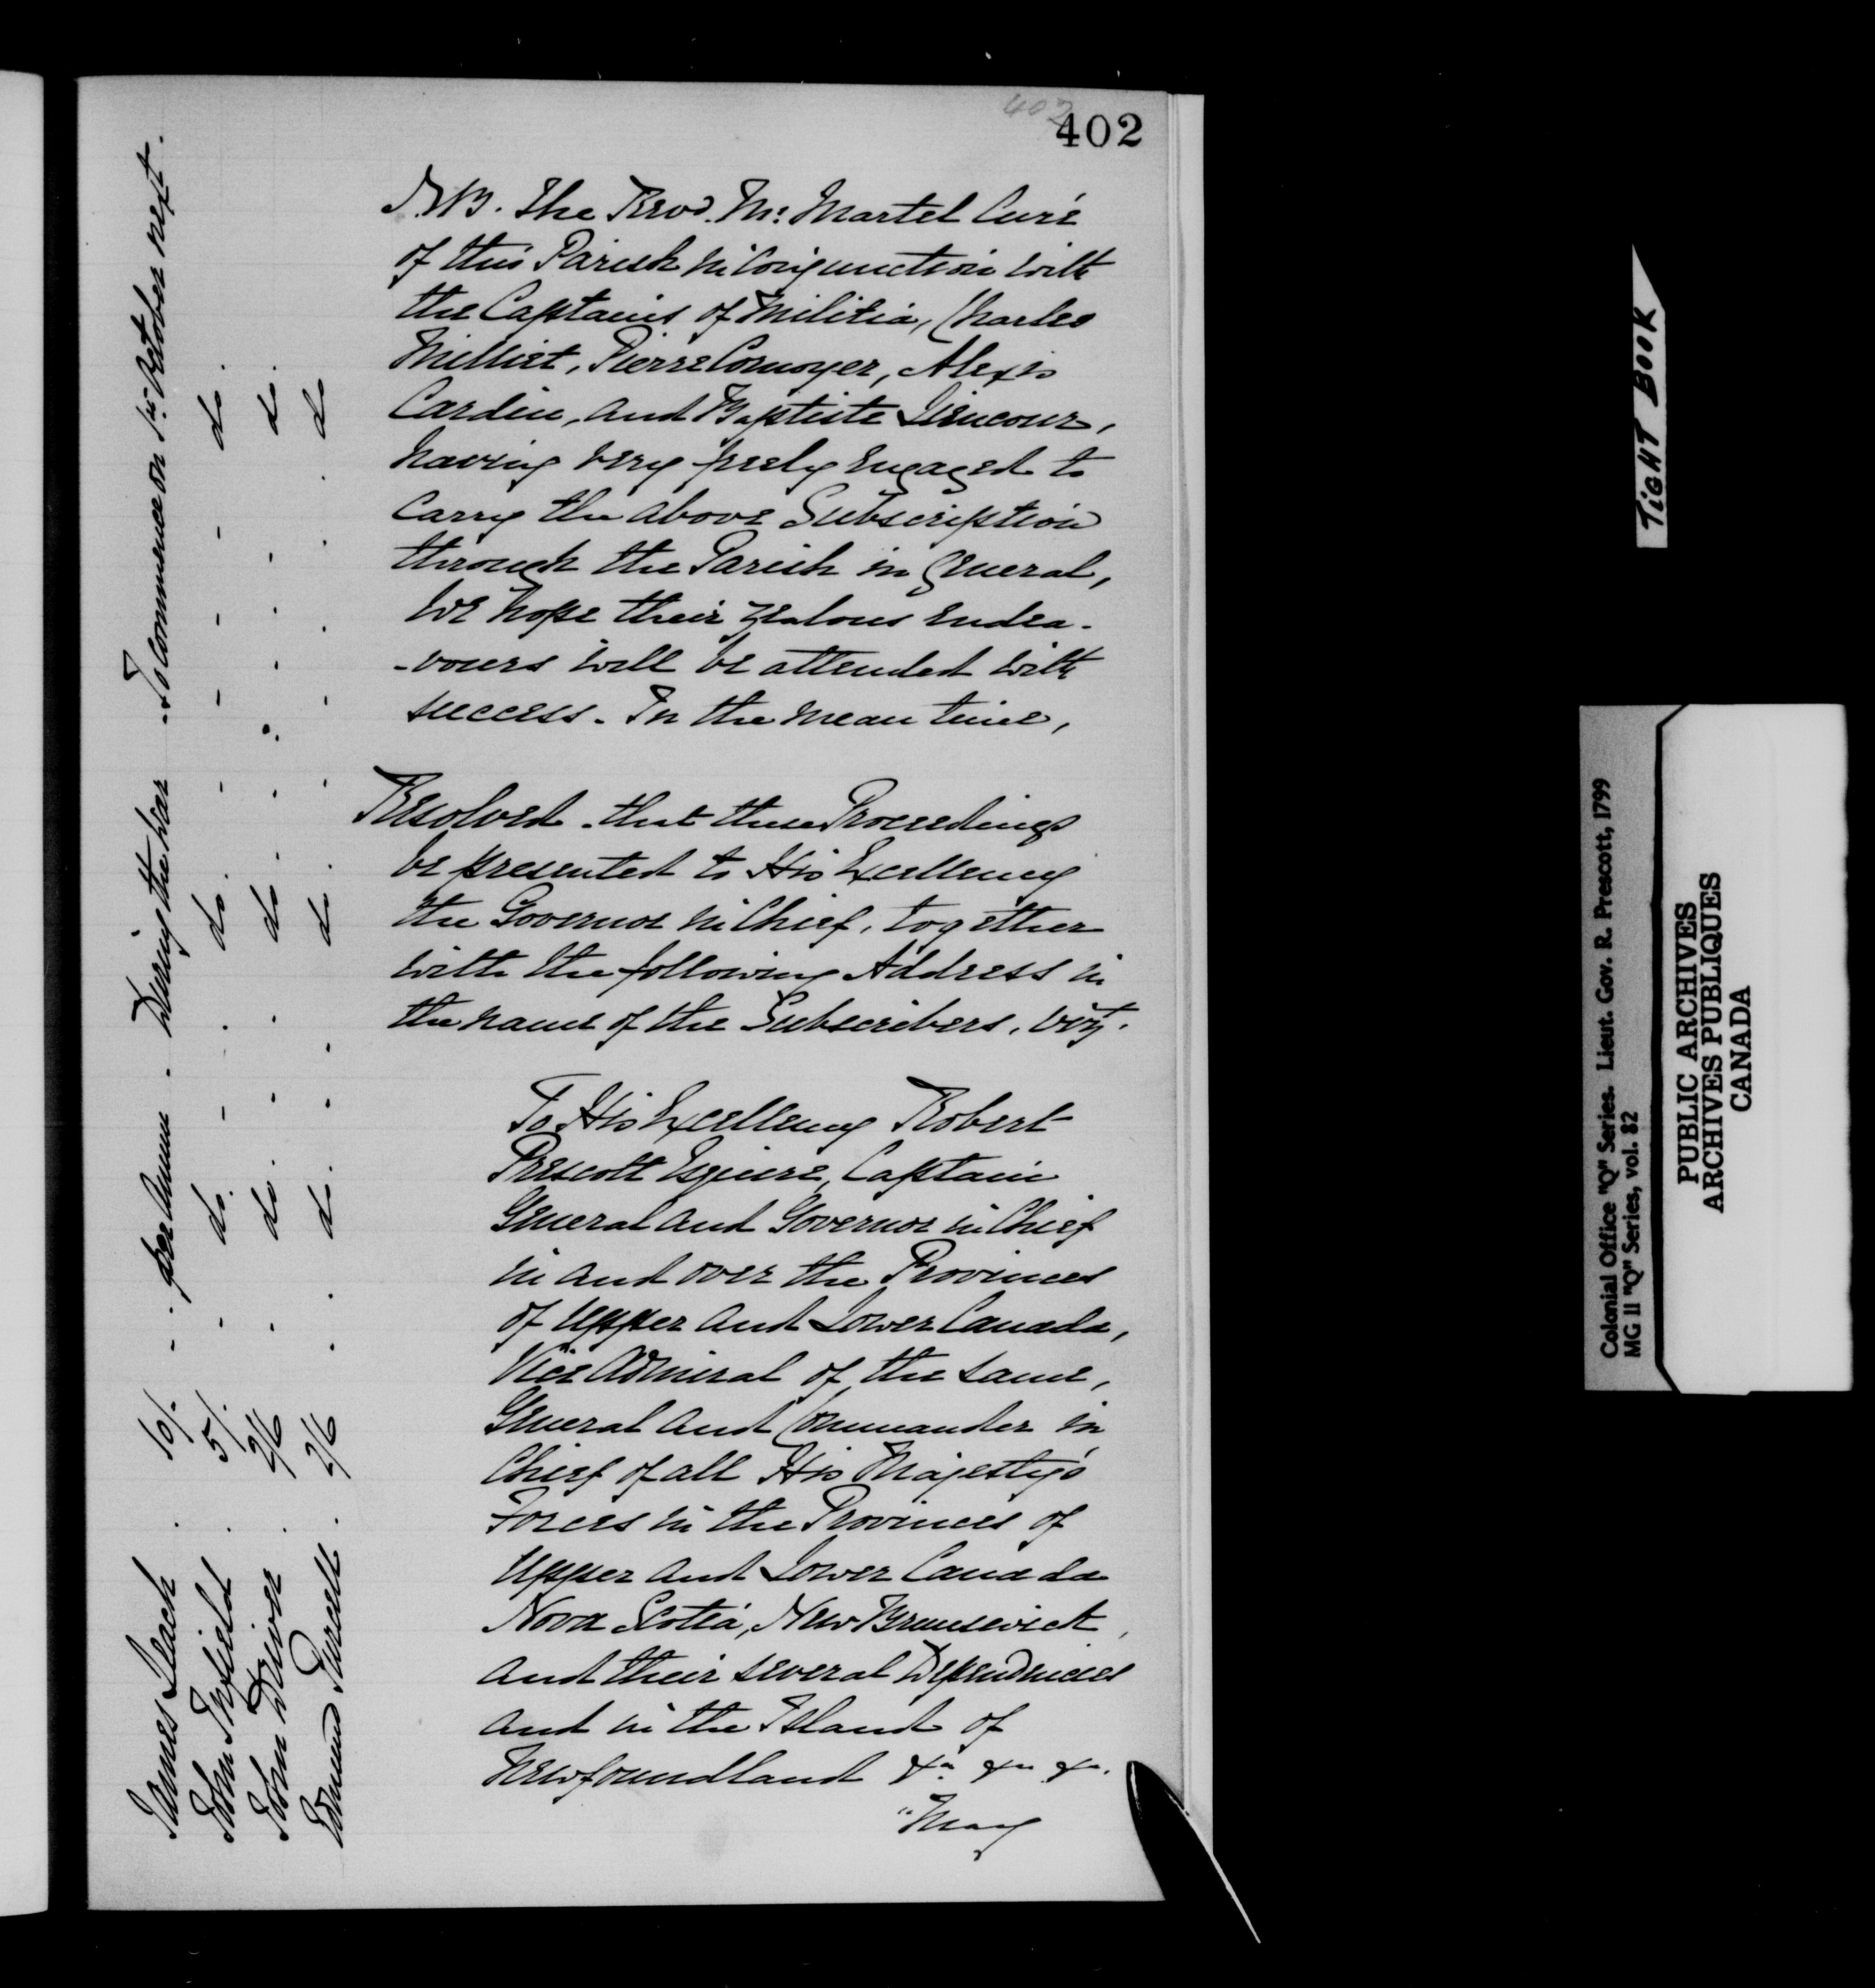 402
402
James Leach . 10/. - - per Annum - During the War - To Commence on 1st October next.
John Infield . 5/. - do. - - do. - - - - do.
John Driver . 2/6 . do. . . do. . . . . do.
Edmund Purcell . 2/6 . do. . . do. . . . . do
N.B. The Revd. Mr. Martel Curé
of this Parish in Conjunction with
the Captains of Militia, Charles
Milliet, Pierre Cournoyer, Alexis
Cardin, and Baptiste Liencour,
having very freely engaged to
Carry the above Subscription
through the Parish in General,
we hope their zealous endea-
-vours will be attended with
success. In the mean time,
Resolved - that these Proceedings
be presented to His Excellency
the Governor in Chief, together
with the following Address in
the name of the Subscribers, vizt.
To His Excellency Robert
Prescott Esquire, Captain
General and Governor in Chief
in and over the Provinces
of Upper and Lower Canada,
Vice Admiral of the same,
General and Commander in
Chief of all His Majesty's
Forces in the Provinces of
Upper and Lower Canada
Nova Scotia, New Brunswick,
and their several Dependencies
and in the Island of
Newfoundland &a. &a. &a.
"May
TIGHT BOOK
Colonial Office "Q" Series. Lieut. Gov. R. Prescott, 1799
MG 11 "Q" Series, vol. 82
PUBLIC ARCHIVES
ARCHIVES PUBLIQUES
CANADA